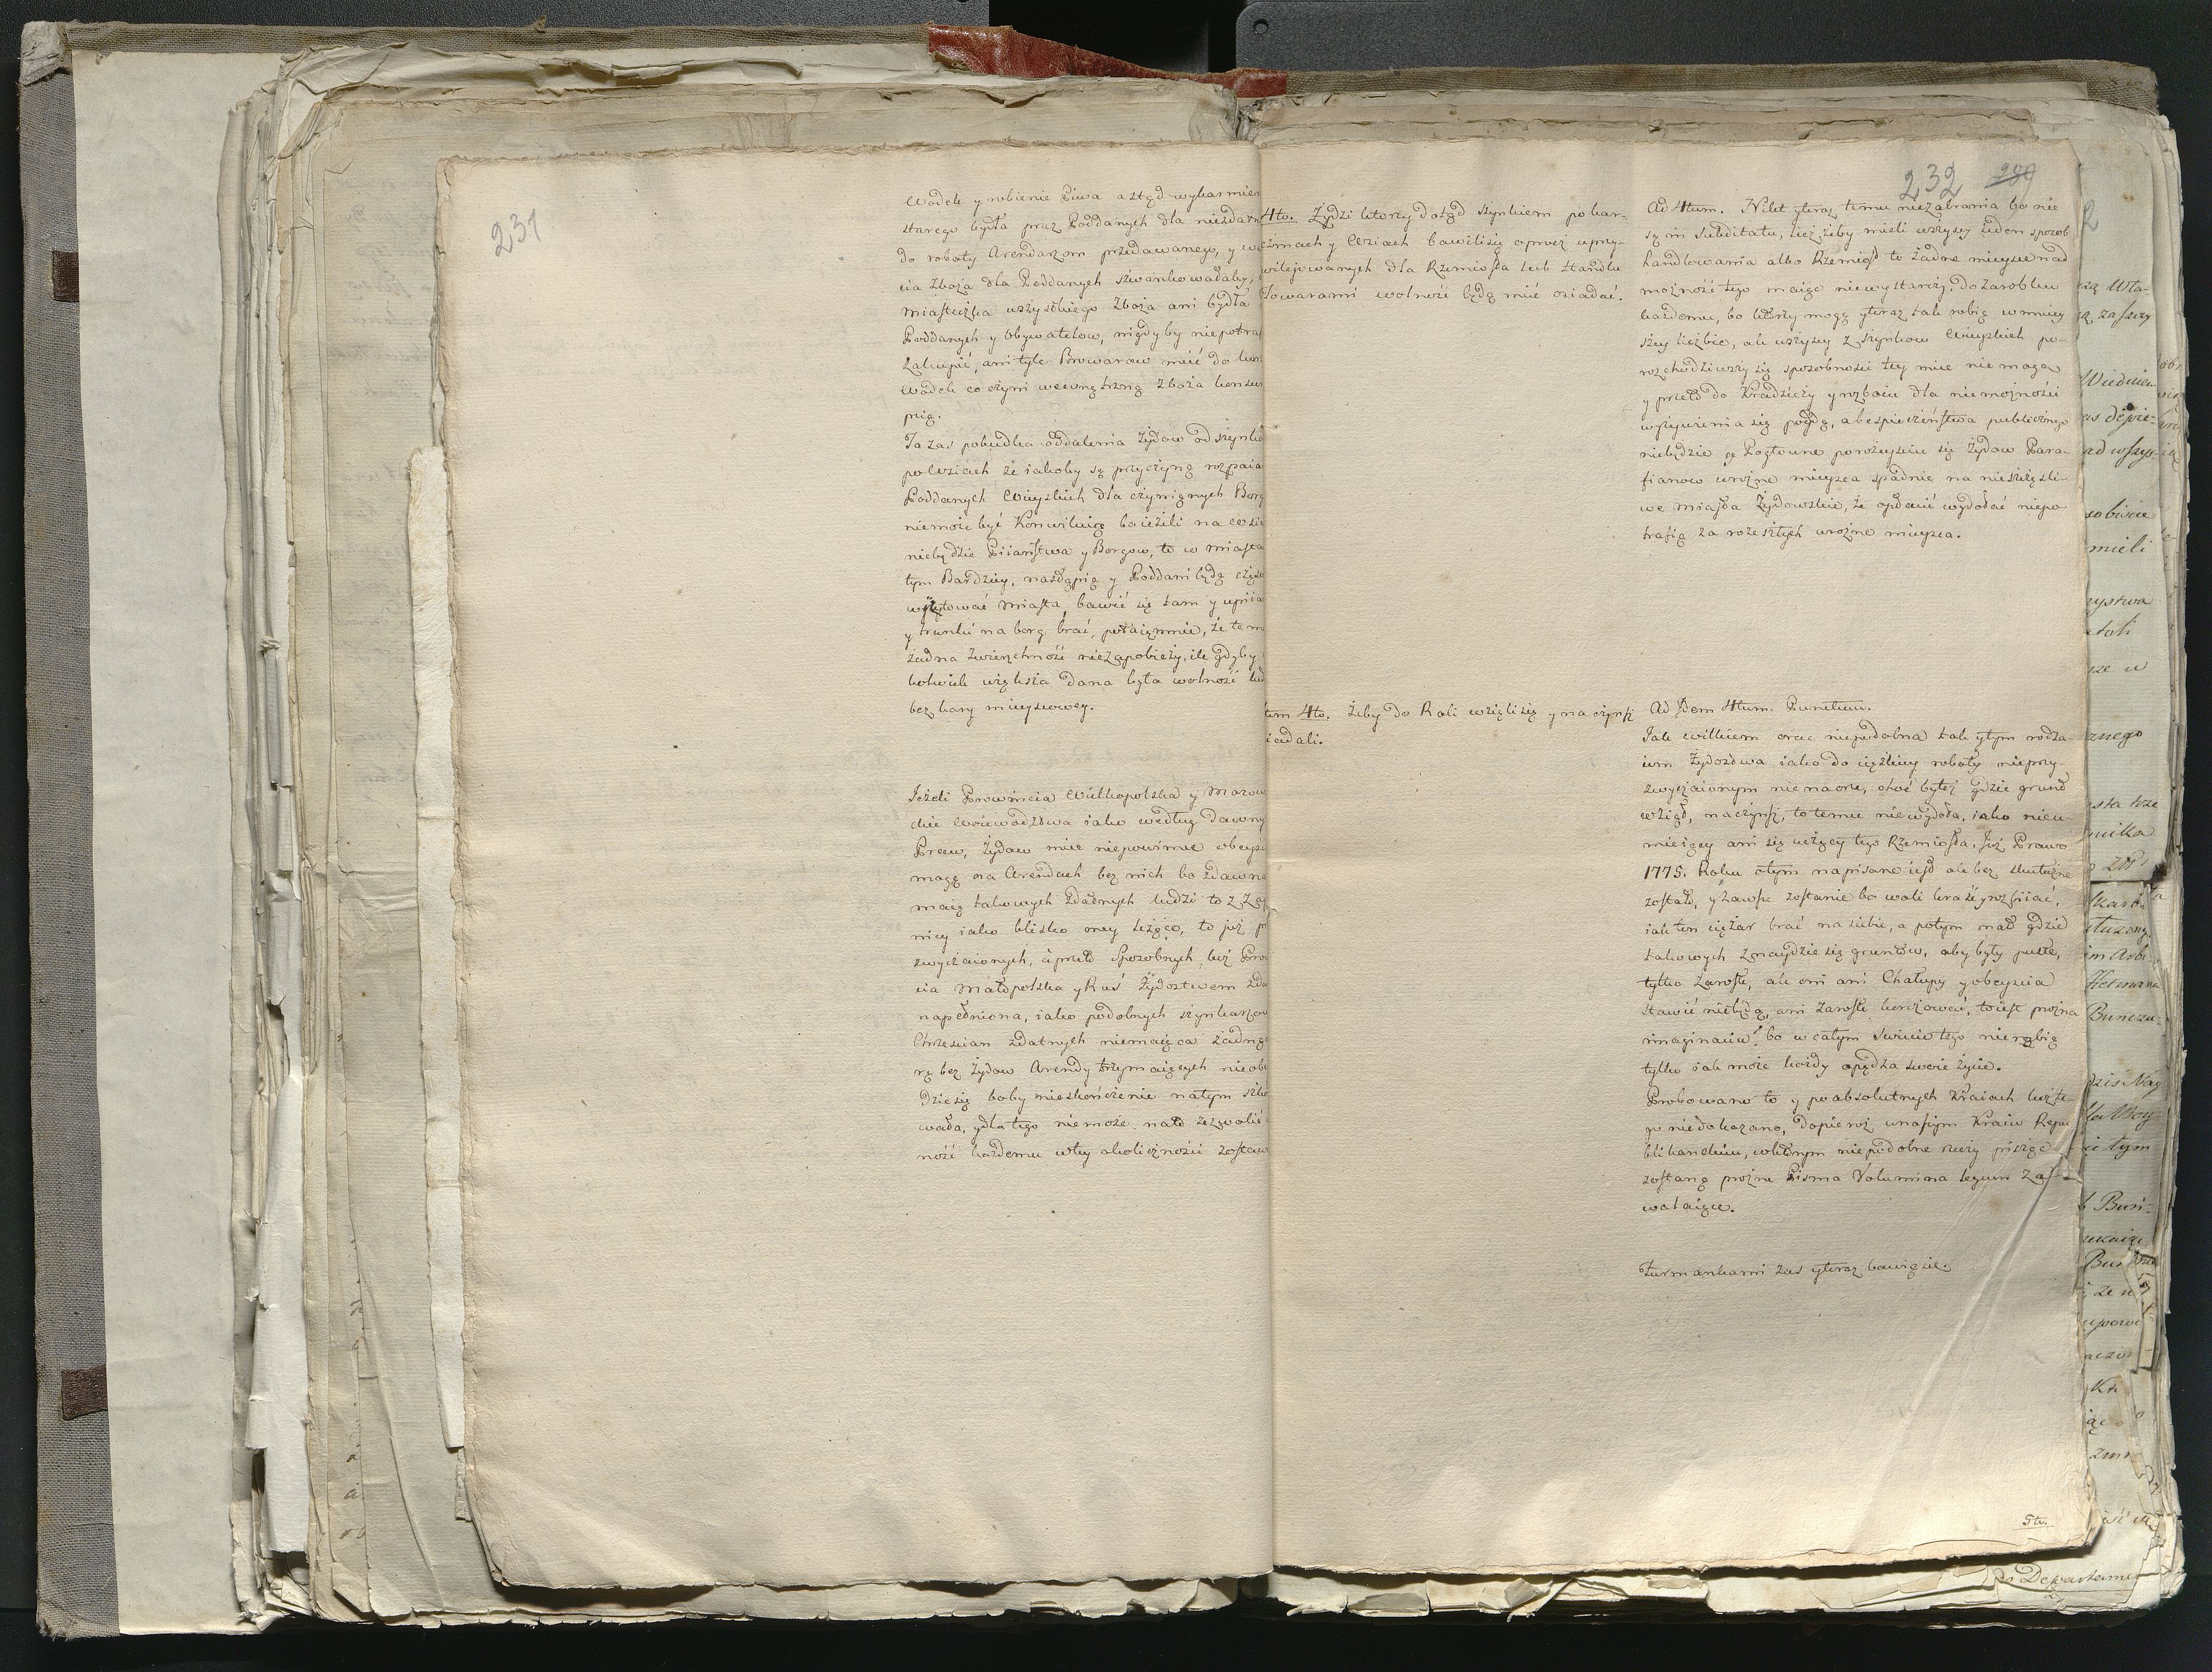 231
Wodek y robienie Piwa a ztąd wykarmien
starego bydła przez Poddanych dla niezdatn
do roboty Arendarzom przedawanego, y w
cia Zboża dla Poddanych szwankowałaby,
miasteczka wszystkiego Zboża ani bydła
Poddanych y Obywatelow, nigdyby niepotra
Zakupić, ani tyle Browarow mieć do kur
Wodek co czyni wewnętrzną Zboża konsu
pcią.
Ta zas pobudka oddalenia Żydow od szynko
po Wsiach że iakoby są przyczyną rozpaia
Poddanych Wieyskich dla czynionych Borg
niemoże być Konwikcią bo ieżeli na Wsi
niebędzie Piiaństwa y Borgow, to w miasta
tym Bardziey, nastąpią y Poddani będą częs
wizytować miasta, bawić się tam y upiia
y trunki na borg brać, potaiemnie, że tem
żadna Zwierzchność niezapobieży, ile gdyby
kolwiek większa dana była wolność lud
bez kary mieyscowey.
Jeżeli Prowincia Wielkopolska y Mazow
ckie Woiewodztwa iako według dawny
Praw, Żydow mieć niepowinne obeyść
mogą na Arendach bez nich bo zdawna
maią takowych zdadnych ludzi to z Za
nicy iako blisko oney leżące, to już p
zwyczaionych, a przeto sposobnych, lecz Pro
cia Małopolska y Ruś Żydostwem zda
napełniona, iako podobnych szynkarzow
Chrzescian zdatnych niemaiąca żadną
rą bez Żydow Arendy trzymaiących nieob
dzie się boby nieskończenie na tym szko
wała, y dla tego niemoże nato zezwolić
ność każdemu w tey okoliczności zostaw
232 289
4to. Żydzi ktorzy dotąd szynkiem po kar-
czmach y Wsiach bawili się oprocz uprzy-
wilejowanych dla Rzemiosła lub Handlu
Towarami wolność będą mieć osiadać.
Ad 4tum. Nikt y teraz temu niezabrania bo nie
są in subditatu, lecz żeby mieli wszyscy jeden sposob
handlowania albo Rzemiosł to żadne mieysce nad
możność tego maiąc niewystarczy, do zarobku
każdemu, bo ktorzy mogą y teraz tak robią w mniey
szey liczbie, ale wszyscy z szynkow Wieyskich po-
rozchodziwszy się sposobności tey mieć nie mogą
y przeto do Kradzieży y rozboiu dla niemożności
wyżywienia się poydą, a bespieczeństwa publicznego
niebędzie y Pogłowne po rozeysciu się Żydow Para-
fianow w rożne mieysca spadnie na nieszczęśli-
we miasta Żydowskie, że opłacić wydołać niepo
trafią za rozeszłych w rożne mieysca.
tem 4to. Żeby do Roli wzięli się y na czynsz
iadali.
Ad Idem 4tum. Punctum.
Jak wilkiem orać niepodobna tak y tym rodza-
iem Żydostwa iako do ciężkiey roboty nieprzy-
zwyczaionym niemożna, choćby też gdzie grunt
wziął, na czynsz, to temu niewydoła, iako nieu-
mieiący ani się uczący tego Rzemiosła. Już Prawo
1775. Roku o tym napisane iest ale bez skuteczne
zostało, y zawsze zostanie bo woli kraść y rozbiiać,
iak ten ciężar brać na siebie, a potym mało gdzie
takowych znaydzie się gruntow, aby były puste,
tylko Zarosłe, ale oni ani Chałupy y obeyscia
stawić niebędą, ani Zarosłe korczować, to iest prożna
imaginacia! bo w całym swiecie tego nie robią
tylko iak może każdy opędza swoie życie.
Probowano to y po absolutnych Kraiach lecz te-
go niedokazano, dopieroż w naszym Kraiu Repu
blikanckim, w ktorym niepodobne rzeczy pisząc
zostaną prożne Pisma Volumina legum za-
walaiące.
Furmankami zas y teraz bawią się.
5to.